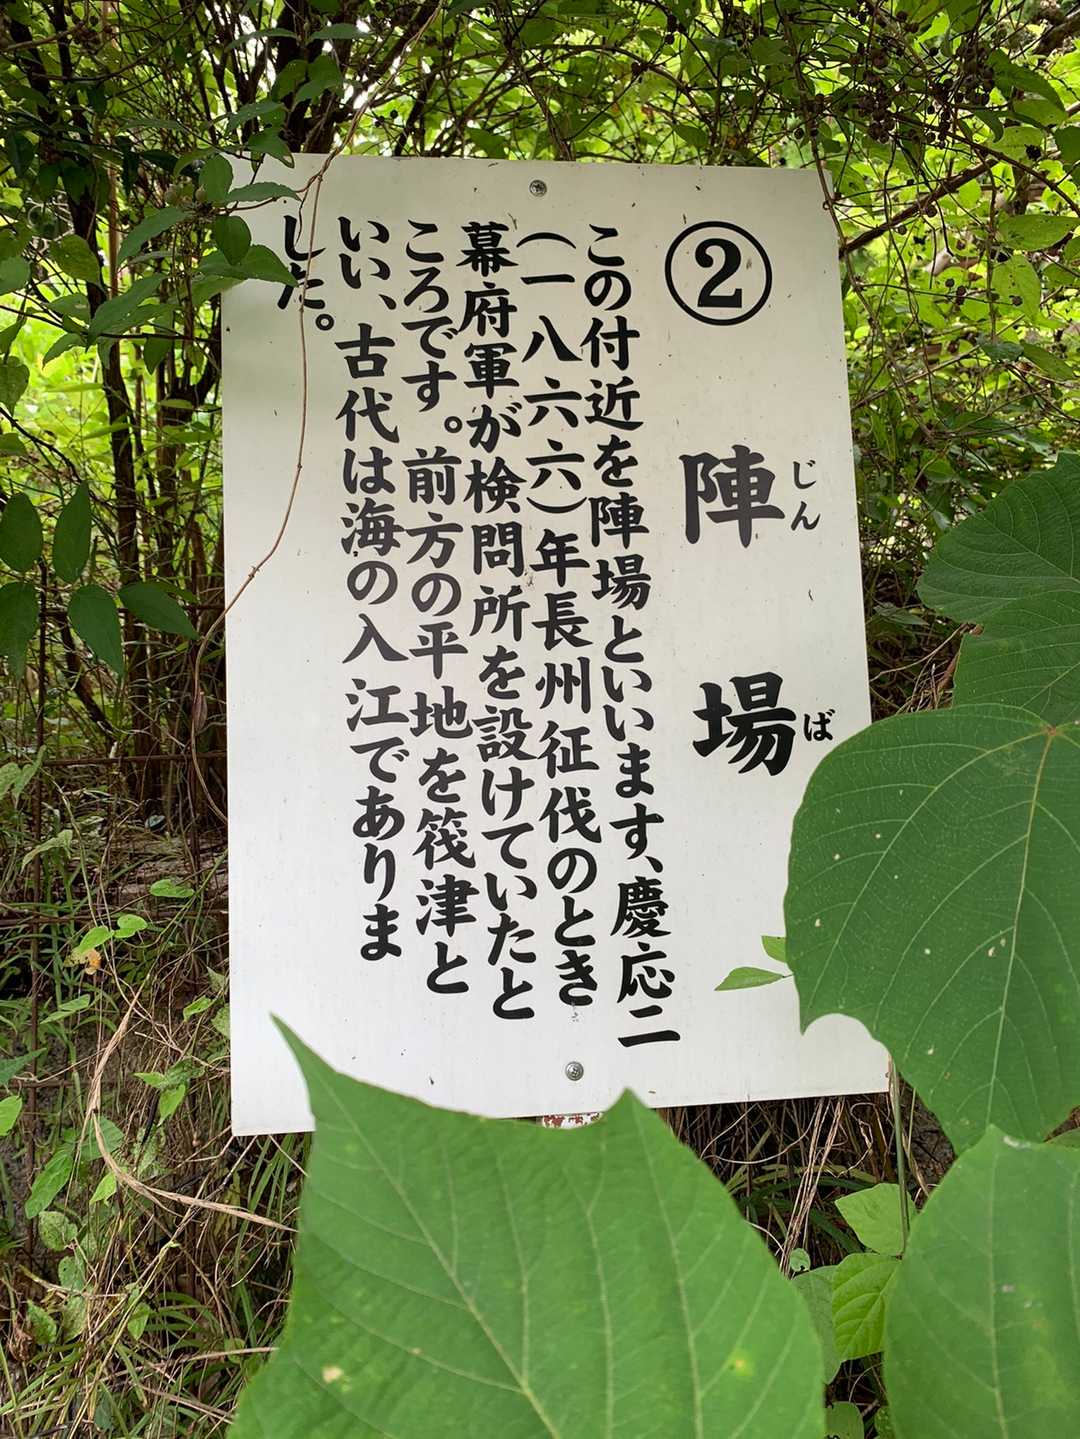 ② 陣場
じんば
この付近を陣場といいます、慶応二
(一八六六)年長州征伐のとき
幕府軍が検問所を設けていたと
ころです。前方の平地を筏津と
いい、古代は海の入江でありま
した。